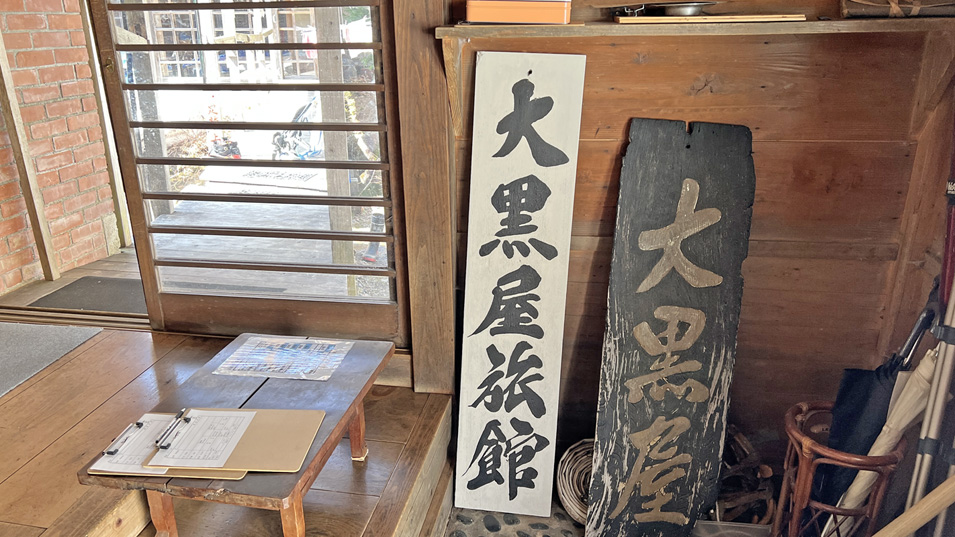 大黒屋旅館
大黒屋